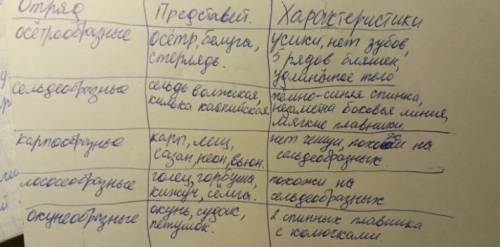 Отряд Представит. Характеристики
осетрообразные осётр, белуга, стерлядь. усики, нет зубов, 5 рядов бляшек, удлинённое тело
сельдеобразные сельдь волжская, килька каспийская, тёмно-синяя спинка, незаметна боковая линия, мягкие плавники.
карпообразные карп, лещ, сазан, неон, вьюн. нет чешуи, похожи на сельдеобразных
лососеобразные голец, горбуша, кижуч, сёмга. похожи на сельдеобразных
окунеобразные окунь, судак, петушок. 2 спинных плавника с колючками.